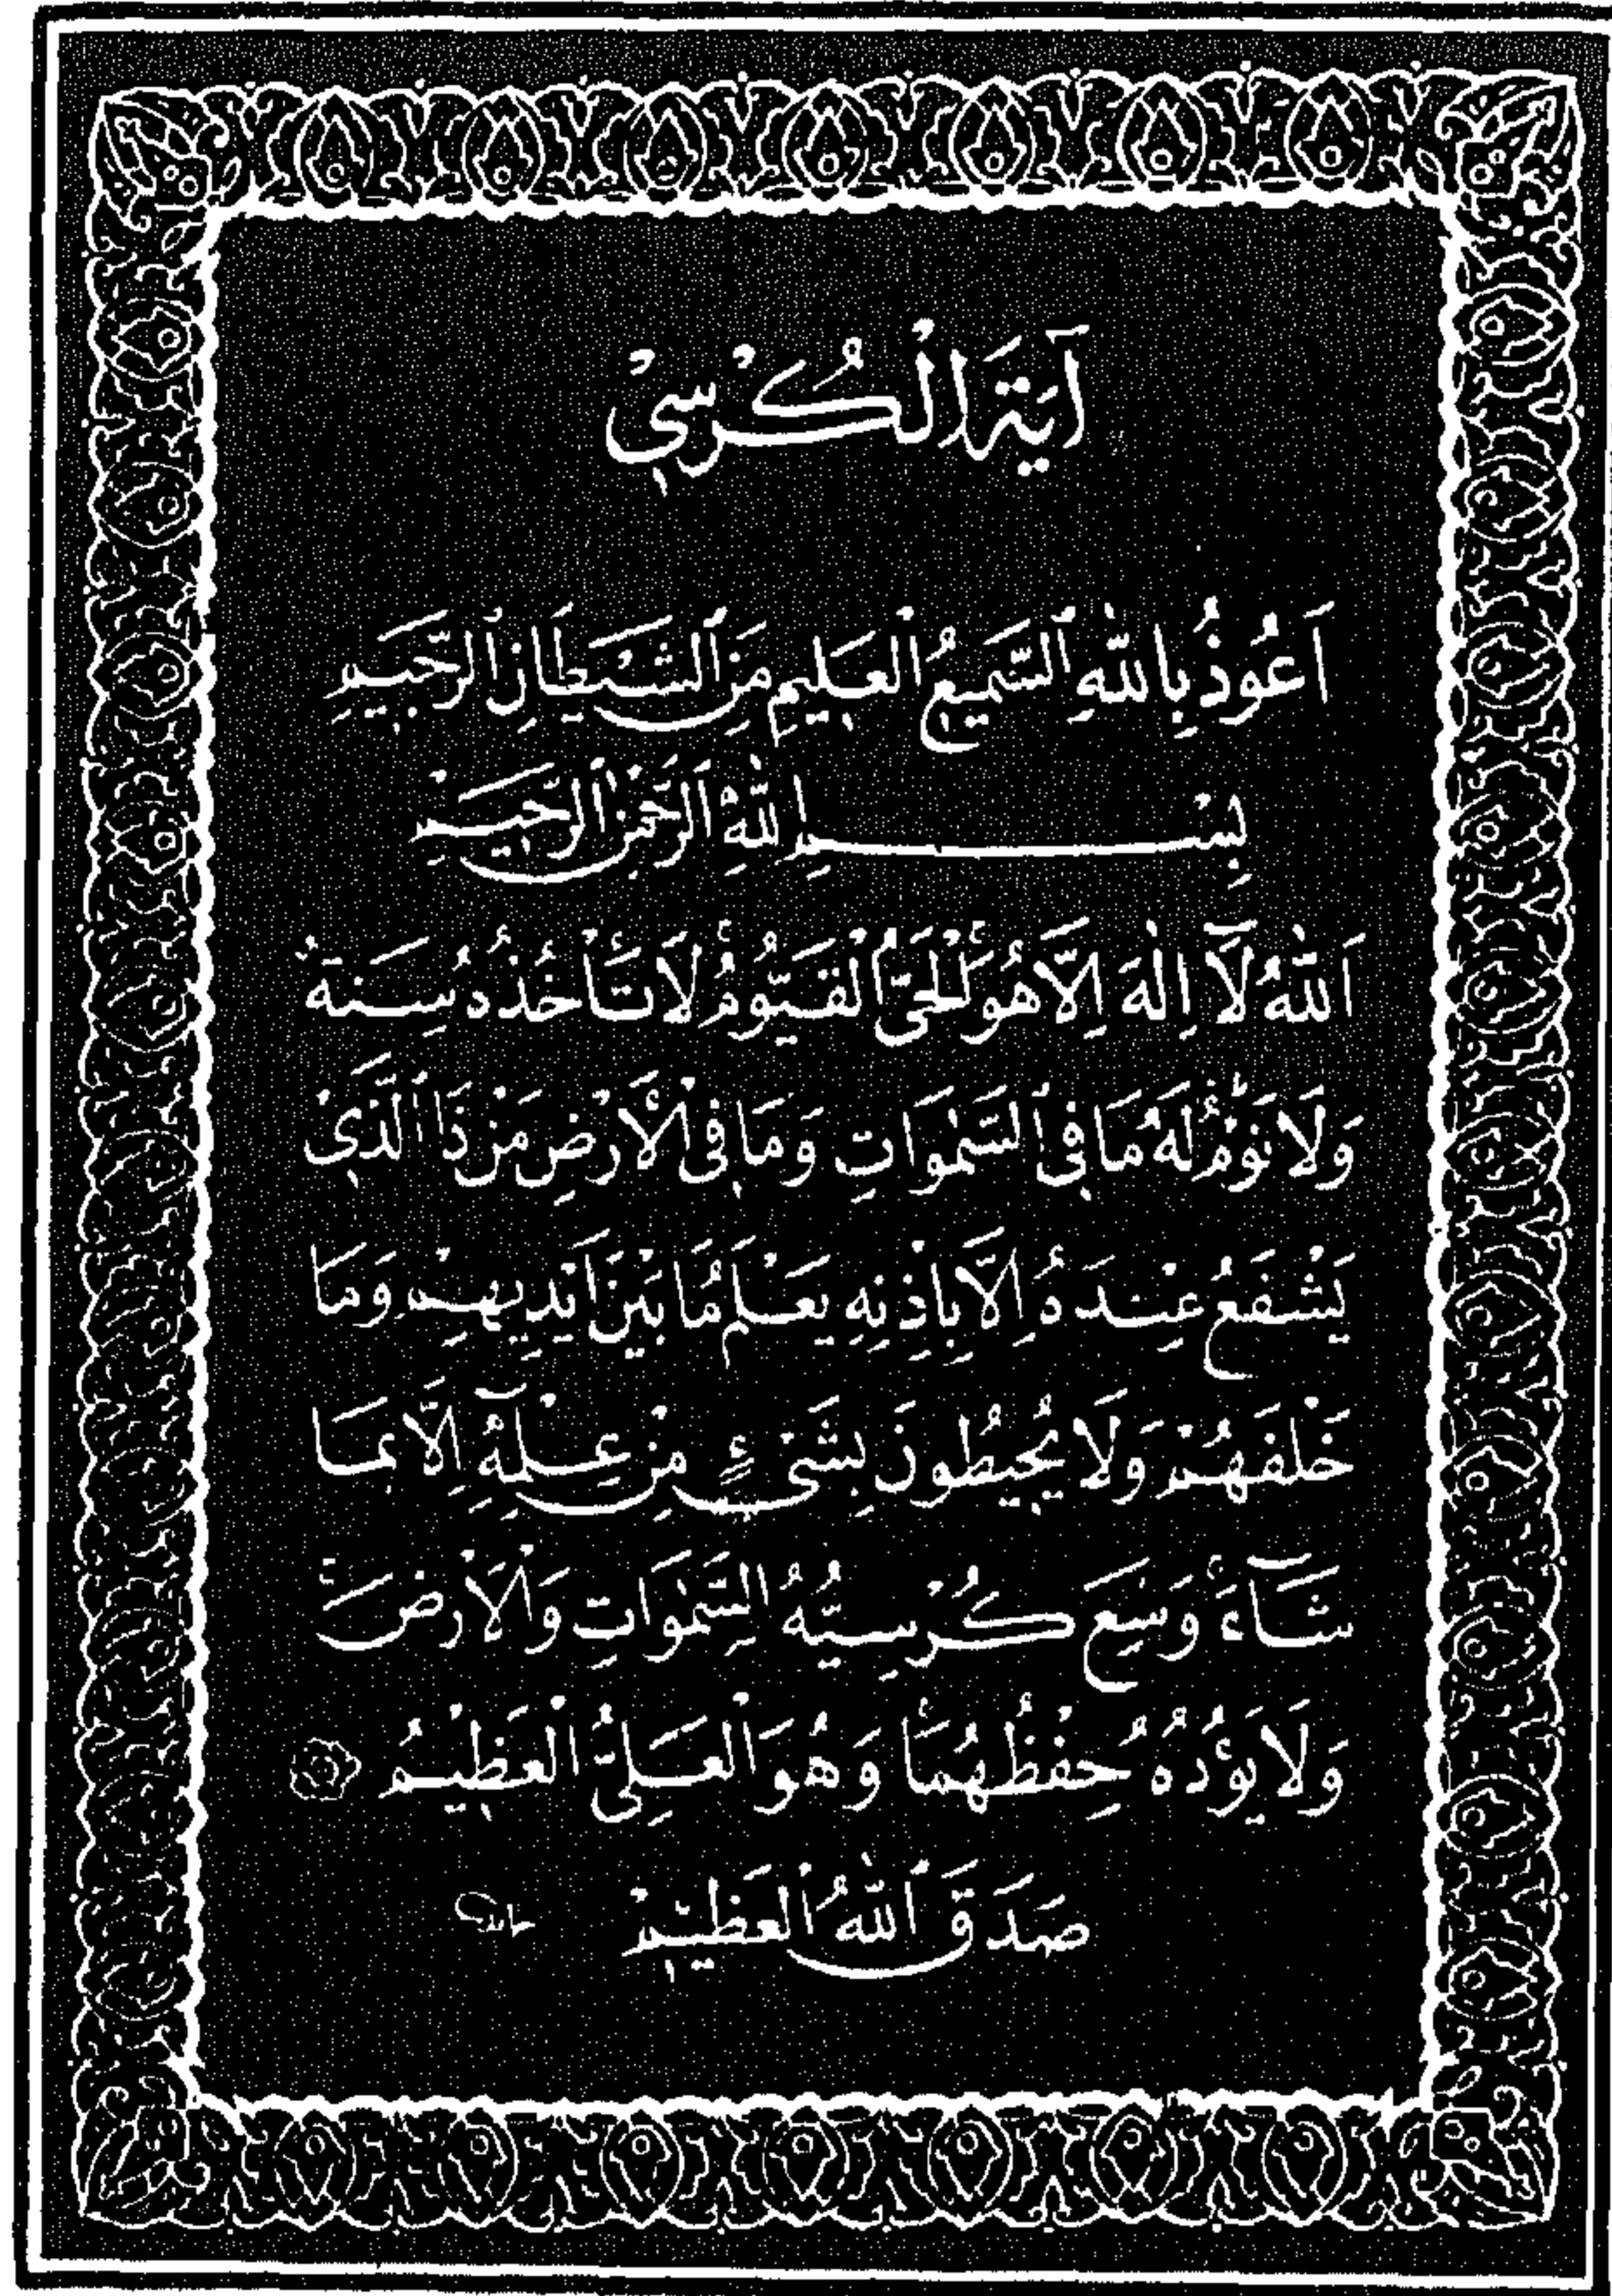 اَيَةَ الْكُرْسِيْ
اَعُوذُ بِاللّٰهِ السَّمِيعُ الْعَلِيمِ مِنَ الشَّيْطَانِ الرَّجِيمِ
بِسْمِ اللّٰهِ الرَّحْمٰنِ الرَّحِيمِ
اَللّٰهُ لَآ اِلٰهَ اِلَّا هُوَ الْحَىُّ الْقَيُّومُ لَا تَأْخُذُهُ سِنَةٌ
وَلَا نَوْمٌ لَهُ مَا فِى السَّمٰوَاتِ وَمَا فِى الْاَرْضِ مَنْ ذَا الَّذِىْ
يَشْفَعُ عِنْدَهُ اِلَّا بِاِذْنِهِ يَعْلَمُ مَا بَيْنَ اَيْدِيهِمْ وَمَا
خَلْفَهُمْ وَلَا يُحِيطُونَ بِشَىْءٍ مِنْ عِلْمِهِٓ اِلَّا بِمَا
شَآءَ وَسِعَ كُرْسِيُّهُ السَّمٰوَاتِ وَالْاَرْضَ
وَلَا يَؤُدُهُ حِفْظُهُمَا وَهُوَ الْعَلِىُّ الْعَظِيْمُ
صَدَقَ اللّٰهُ الْعَظِيْمْ